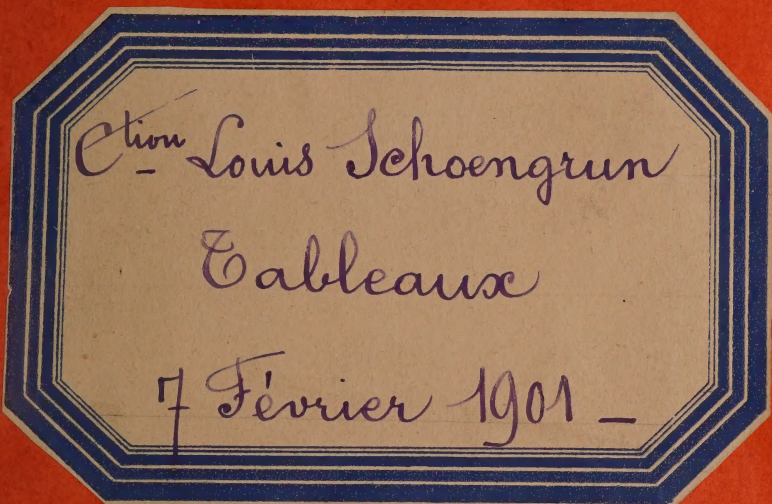 Ction Louis Schoengrun
Tableaux
7 Février 1901 _